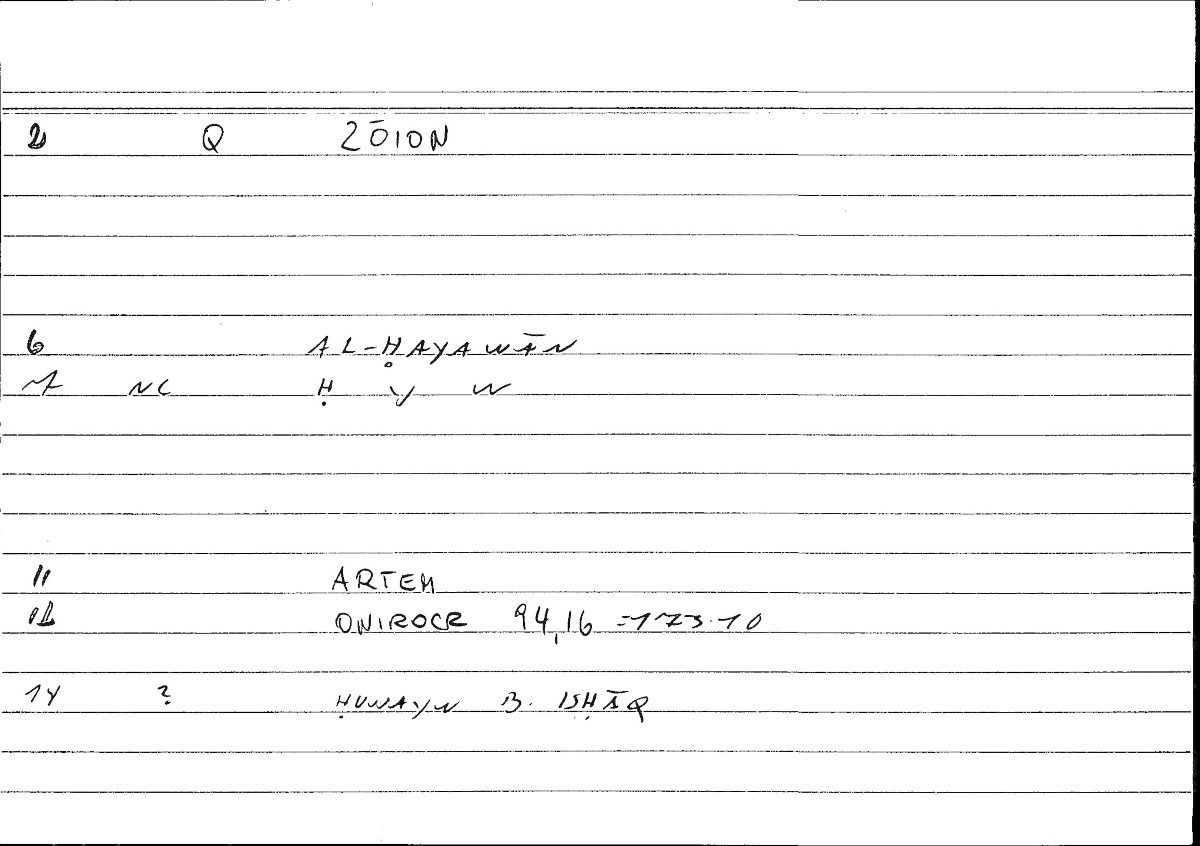 2 Q ZŌION
6 AL-ḤAYAWĀN
7 NC Ḥ Y W
11 ARTEM
12 ONIROCR 94,16 =173.10
14 ? ḤUNAYN B. ISḤĀQ